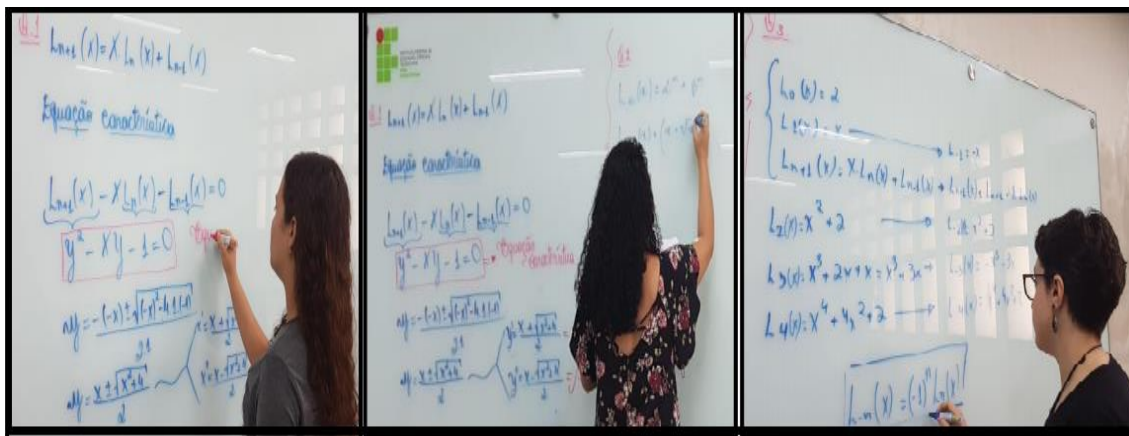 Q.1
Ln+1(x) = X Ln(x) + Ln-1(x)
Equação característica
Ln+1(x) - X Ln(x) - Ln-1(x) = 0
y² - Xy - 1 = 0
y = -(-x) ± √(-x)² - 4.1.(-1)
2.1
y = x ± √x²+4
2
x' = x + √x²+4
2
x'' = x - √x²+4
2
Q.1
Ln+1(x) = X Ln(x) + Ln-1(x)
Equação característica
Ln+1(x) - X Ln(x) - Ln-1(x) = 0
y² - Xy - 1 = 0 → Equação
característica
y = -(-x) ± √(-x)² - 4.1.(-1)
2.1
y = x ± √x²+4
2
y' = x + √x²+4 =
2
y'' = x - √x²+4 =
2
Q.2
Q.3
L0(x) = 2
L1(x) = x
Ln+1(x) = X.Ln(x) + Ln-1(x)
L2(x) = x² + 2
L3(x) = x³ + 2x + x = x³ + 3x
L4(x) = x⁴ + 4x² + 2
L-n(x) = (-1)ⁿ Ln(x)